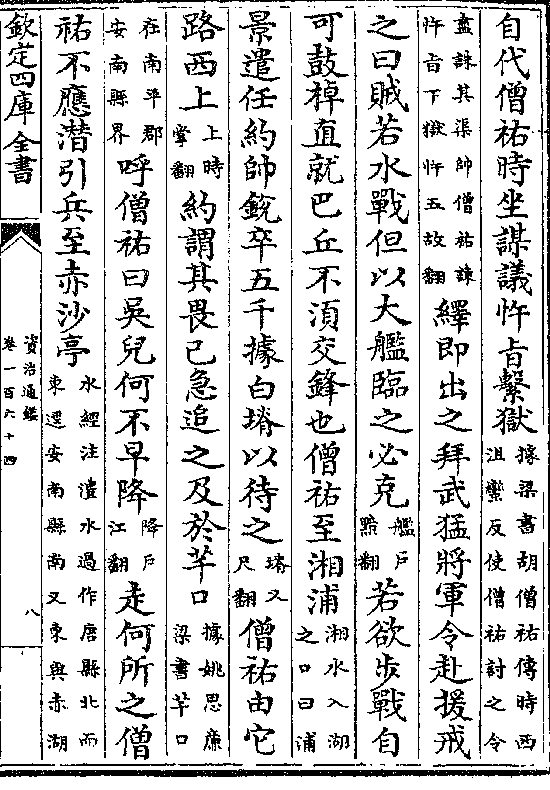 自代僧祐時坐謀議忤旨繫獄據梁書胡僧祐傳時西沮蠻反使僧祐討之令
盡誅其渠帥僧祐諫忤旨下獄忤五故翻繹即出之拜武猛將軍令赴援戒
之曰賊若水戰但以大艦臨之必克艦户黯翻若欲步戰自
可鼓棹直就巴丘不湏交鋒也僧祐至湘浦湘水入湖之口曰浦
景遣任約帥銳卒五千據白塉以待之塉又尺翻僧祐由它
路西上上時掌翻約謂其畏已急追之及於芊口據姚思廉梁書芊口
在南平郡安南縣界呼僧祐曰吳兒何不早降降户江翻走何所之僧
祐不應潛引兵至赤沙亭水經注澧水過作唐縣北而東逕安南縣南又東與赤湖
欽定四庫全書
資治通鑑
卷一百六十四
八